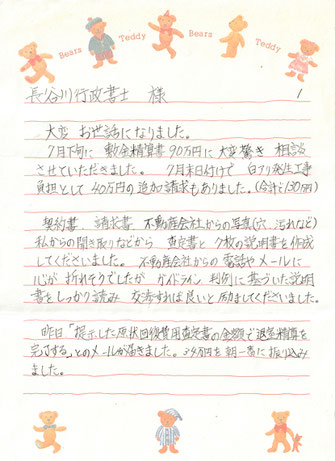 Bears Teddy Bears Teddy
長谷川行政書士 様
1
大変 お世話になりました。
7月下旬に 敷金精算書90万円に大変驚き 相談
させていただきました。 7月末日付けで 白アリ発生工事
負担として 40万円の追加請求もありました。(合計130万円)
契約書 請求書 不動産会社からの写真(穴、汚れなど)
私からの聞き取りなどから 査定書と 7枚の説明書を作成
してくださいました。不動産会社からの電話やメールに
心が折れそうでしたが ガイドライン 判例に基づいた説明
書をしっかり読み 交渉すれば良いと励ましてくださいました。
昨日「提示した原状回復費用査定書の金額で退去精算を
完了する」とのメールが届きました。34万円を朝一番に振り込み
ました。